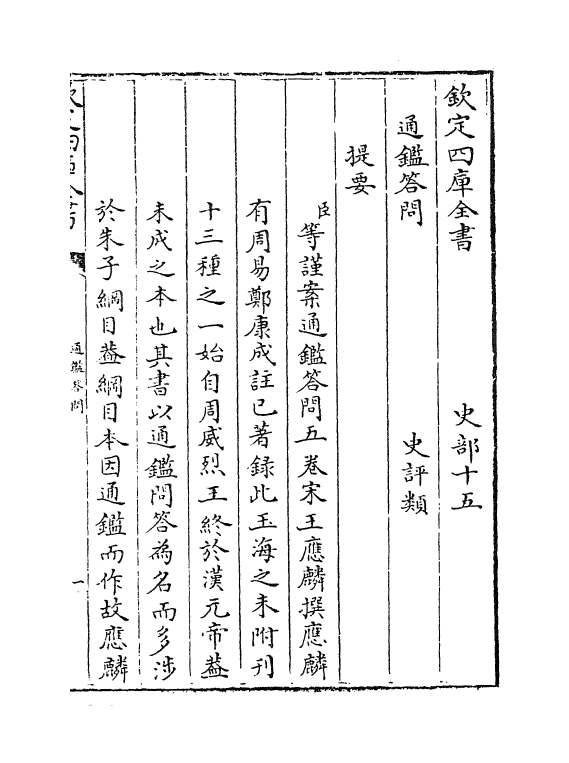 欽定四庫全書　史部十五
通鑑答問　史評類
提要
臣等謹案通鑑答問五卷宋王應麟撰應麟
有周易鄭康成註已著録此玉海之末附刊
十三種之一始自周威烈王終於漢元帝葢
未成之本也其書以通鑑問答為名而多涉
於朱子綱目葢綱目本因通鑑而作故應麟
欽定四庫全書
通鑑答問
一